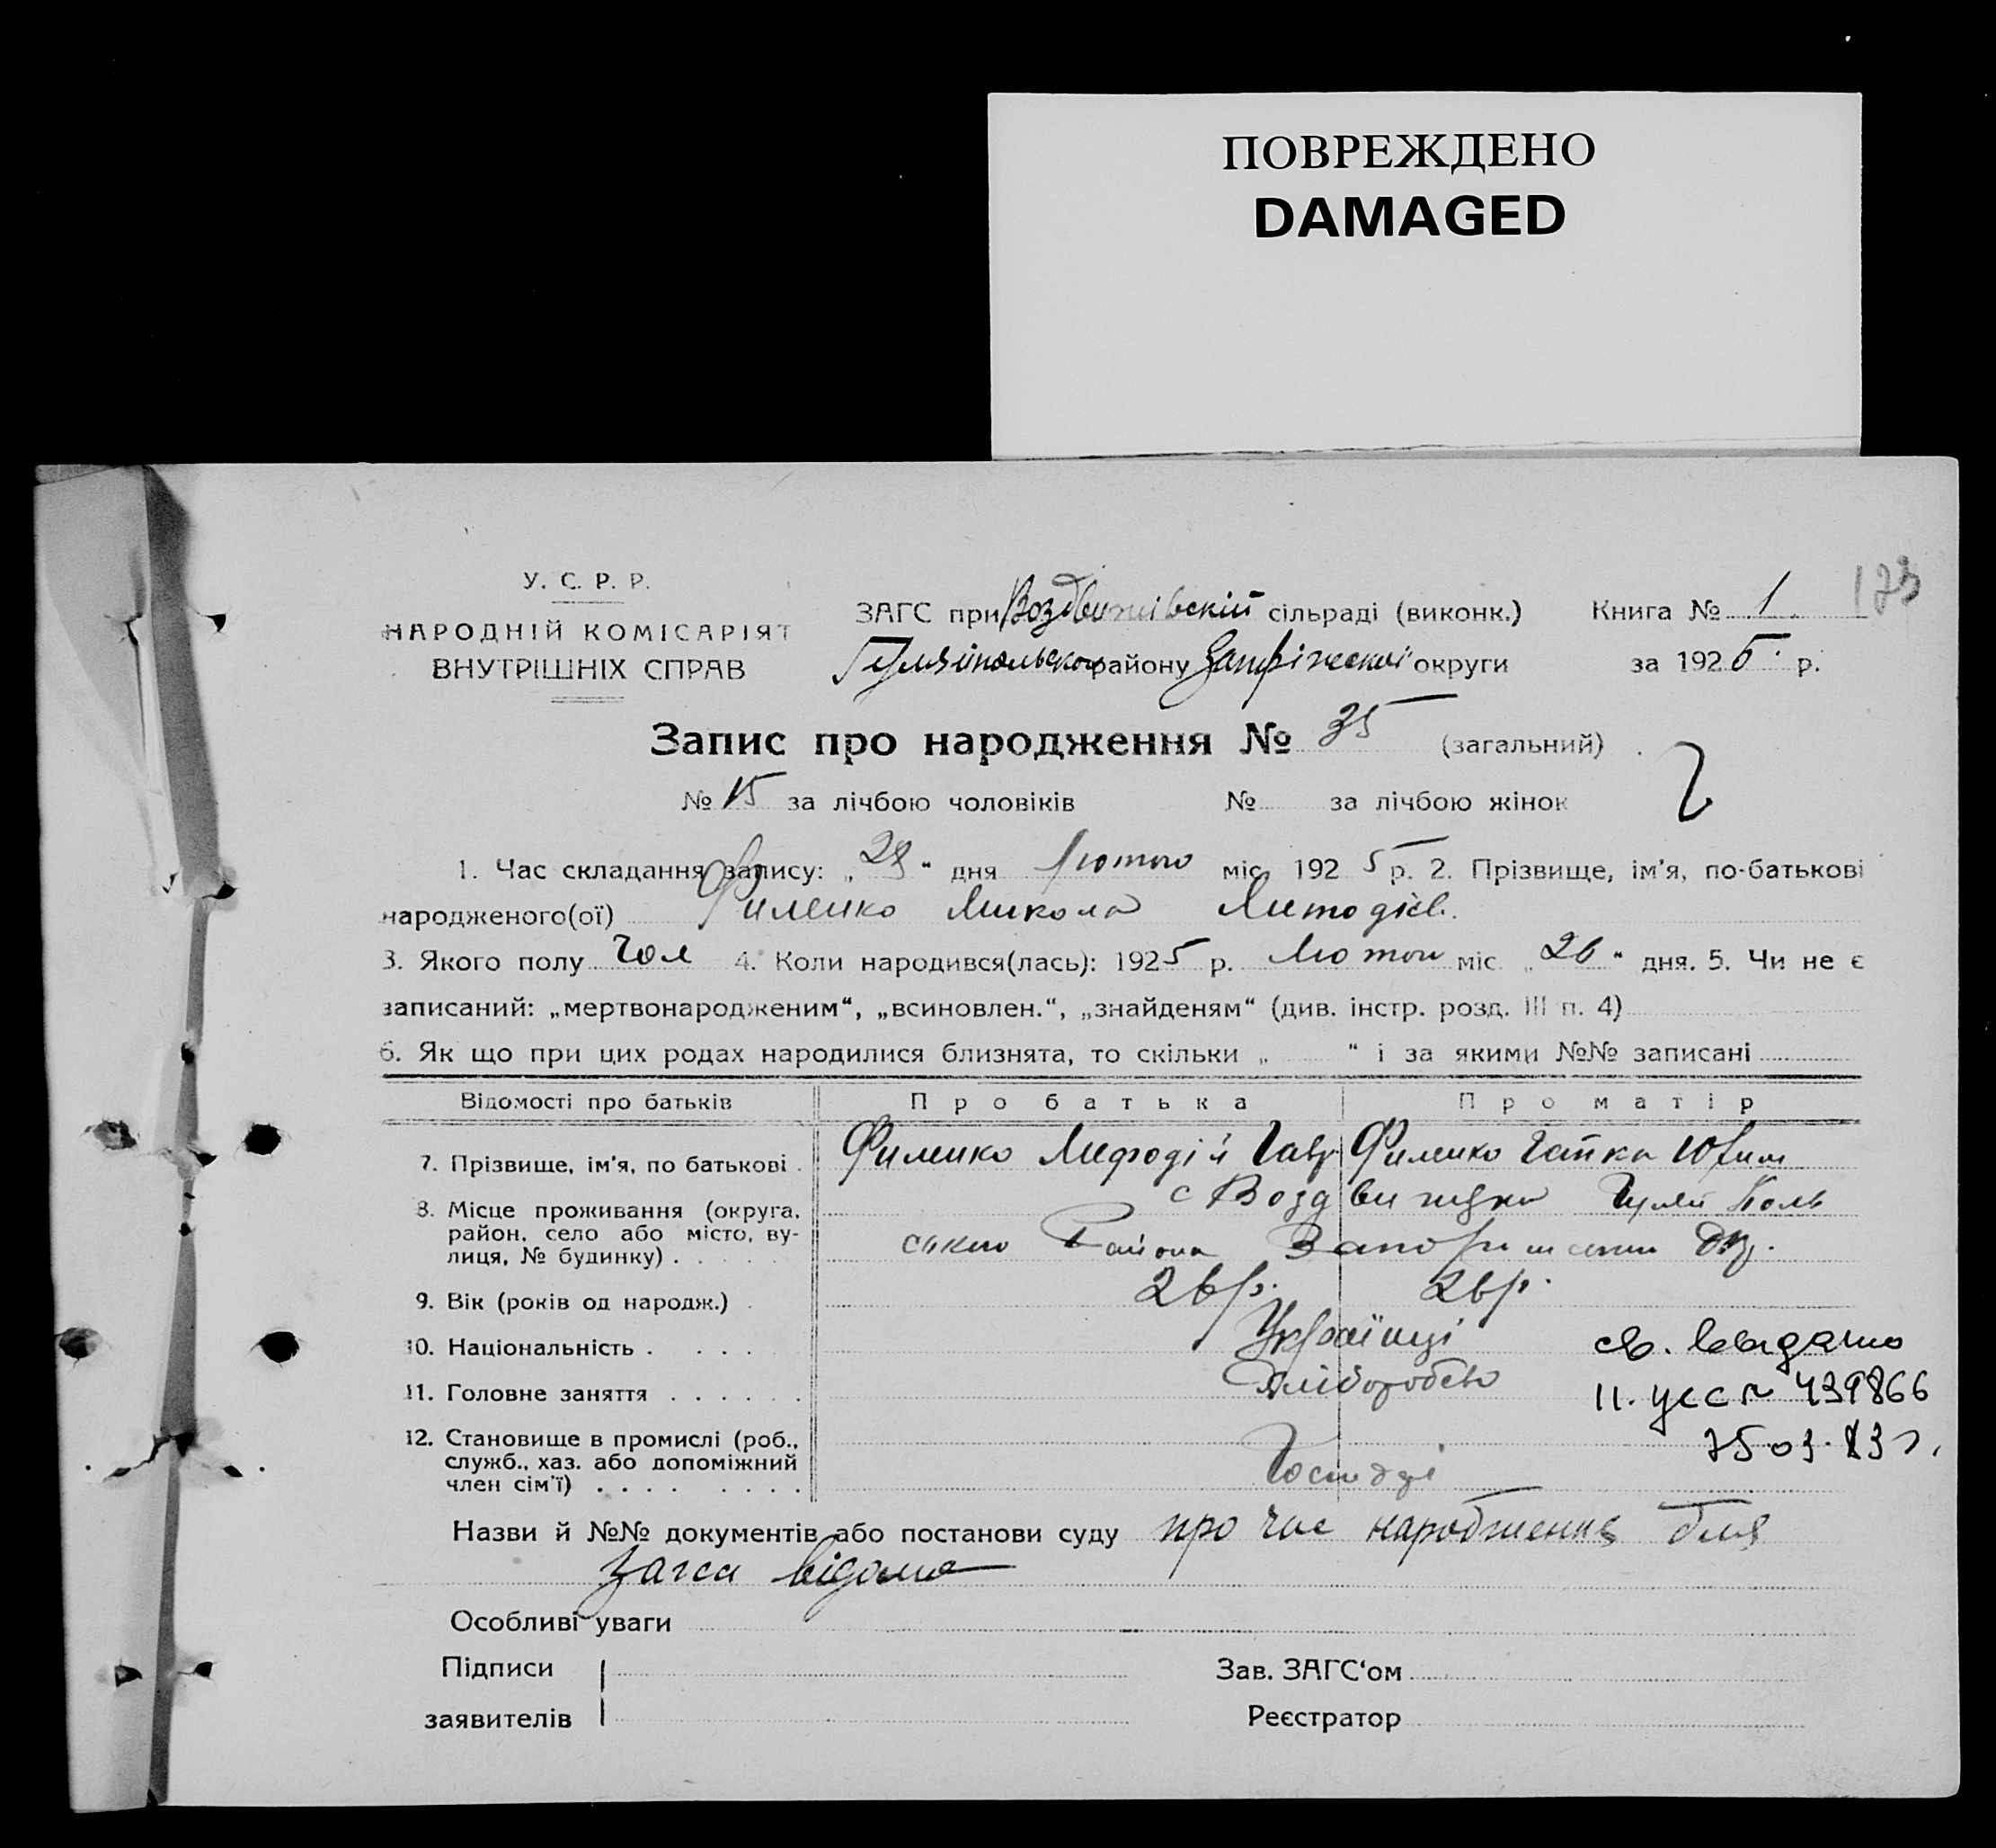 ПОВРЕЖДЕНО
DAMAGED
173
У. С. Р. Р.
НАРОДНІЙ КОМІСАРІЯТ
ВНУТРІШНІХ СПРАВ
ЗАГС при Воздвижівскій сільраді (виконк.) Книга № 1
Гуляйпольского району округи за 1925 р.
Запис про народження № 35 (загальний)
№ 15 за лічбою чоловіків № за лічбою жінок
1. Час складання запису: „28“ дня Лютого міс. 1925 р. 2. Прізвище, ім'я, по-батькові
народженого(ої) Филенко Микола Методієв.
3. Якого полу Чол 4. Коли народився(лась): 1925 р. Лютого міс. „26“ дня. 5. Чи не є
записаний: „мертвонародженим“, „всиновлен.“, „знайденям“ (див. інстр. розд. III п. 4)
6. Як що при цих родах народилися близнята, то скільки „ “ і за якими №№ записані
Відомості про батьків Про батька Про матір
7. Прізвище, ім'я, по батькові . Филенко Мефодій Гавр Филенко Гапка Юхим
8. Місце проживання (округа, с Воздвижівка Гуляй Поль
район, село або місто, ву-
лиця, № будинку) . . . . . ського Района Запоріжської
9. Вік (років од народж.) . 26 р. 26 р.
10. Національність . . . . Українці
св. видано
11. Головне заняття . . . . . . Хлібороби
439866
12. Становище в промислі (роб.,
служб., хаз. або допоміжний
член сім'ї) . . . . . . . . Господарі
Назви й №№ документів або постанови суду про час народження для
Загса відомо
Особливі уваги
Підписи
заявителів
Зав. ЗАГС'ом
Реєстратор